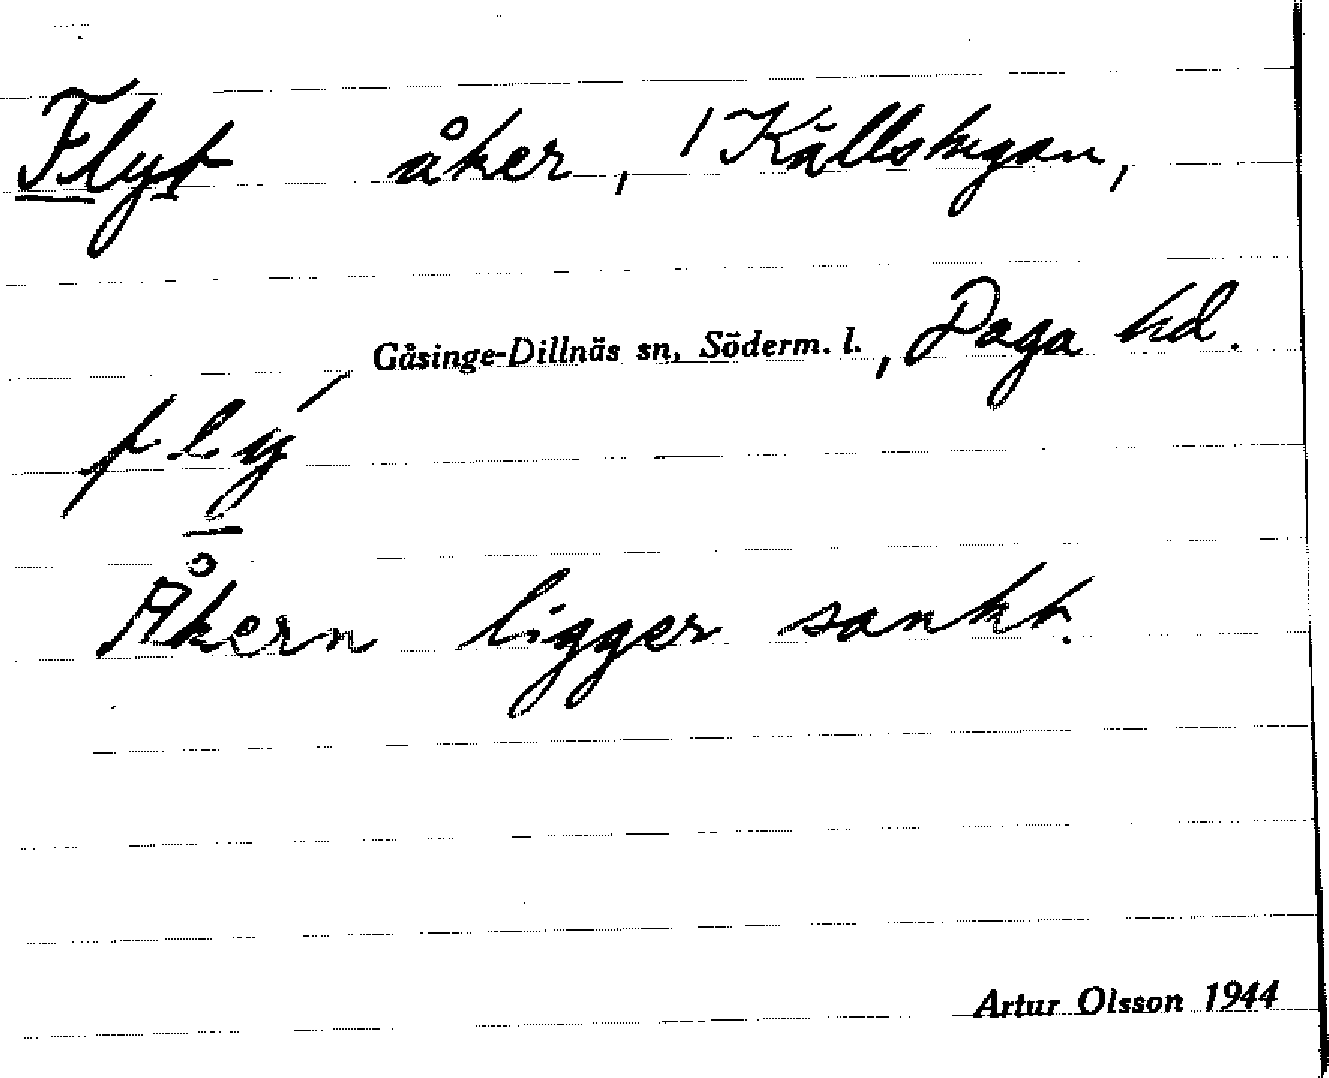 Flyt åker, 1 Källstugan,
Gåsinge-Dillnäs sn, Söderm. l., Daga hd.
fly´
Åkern ligger sankt.
Artur Olsson 1944